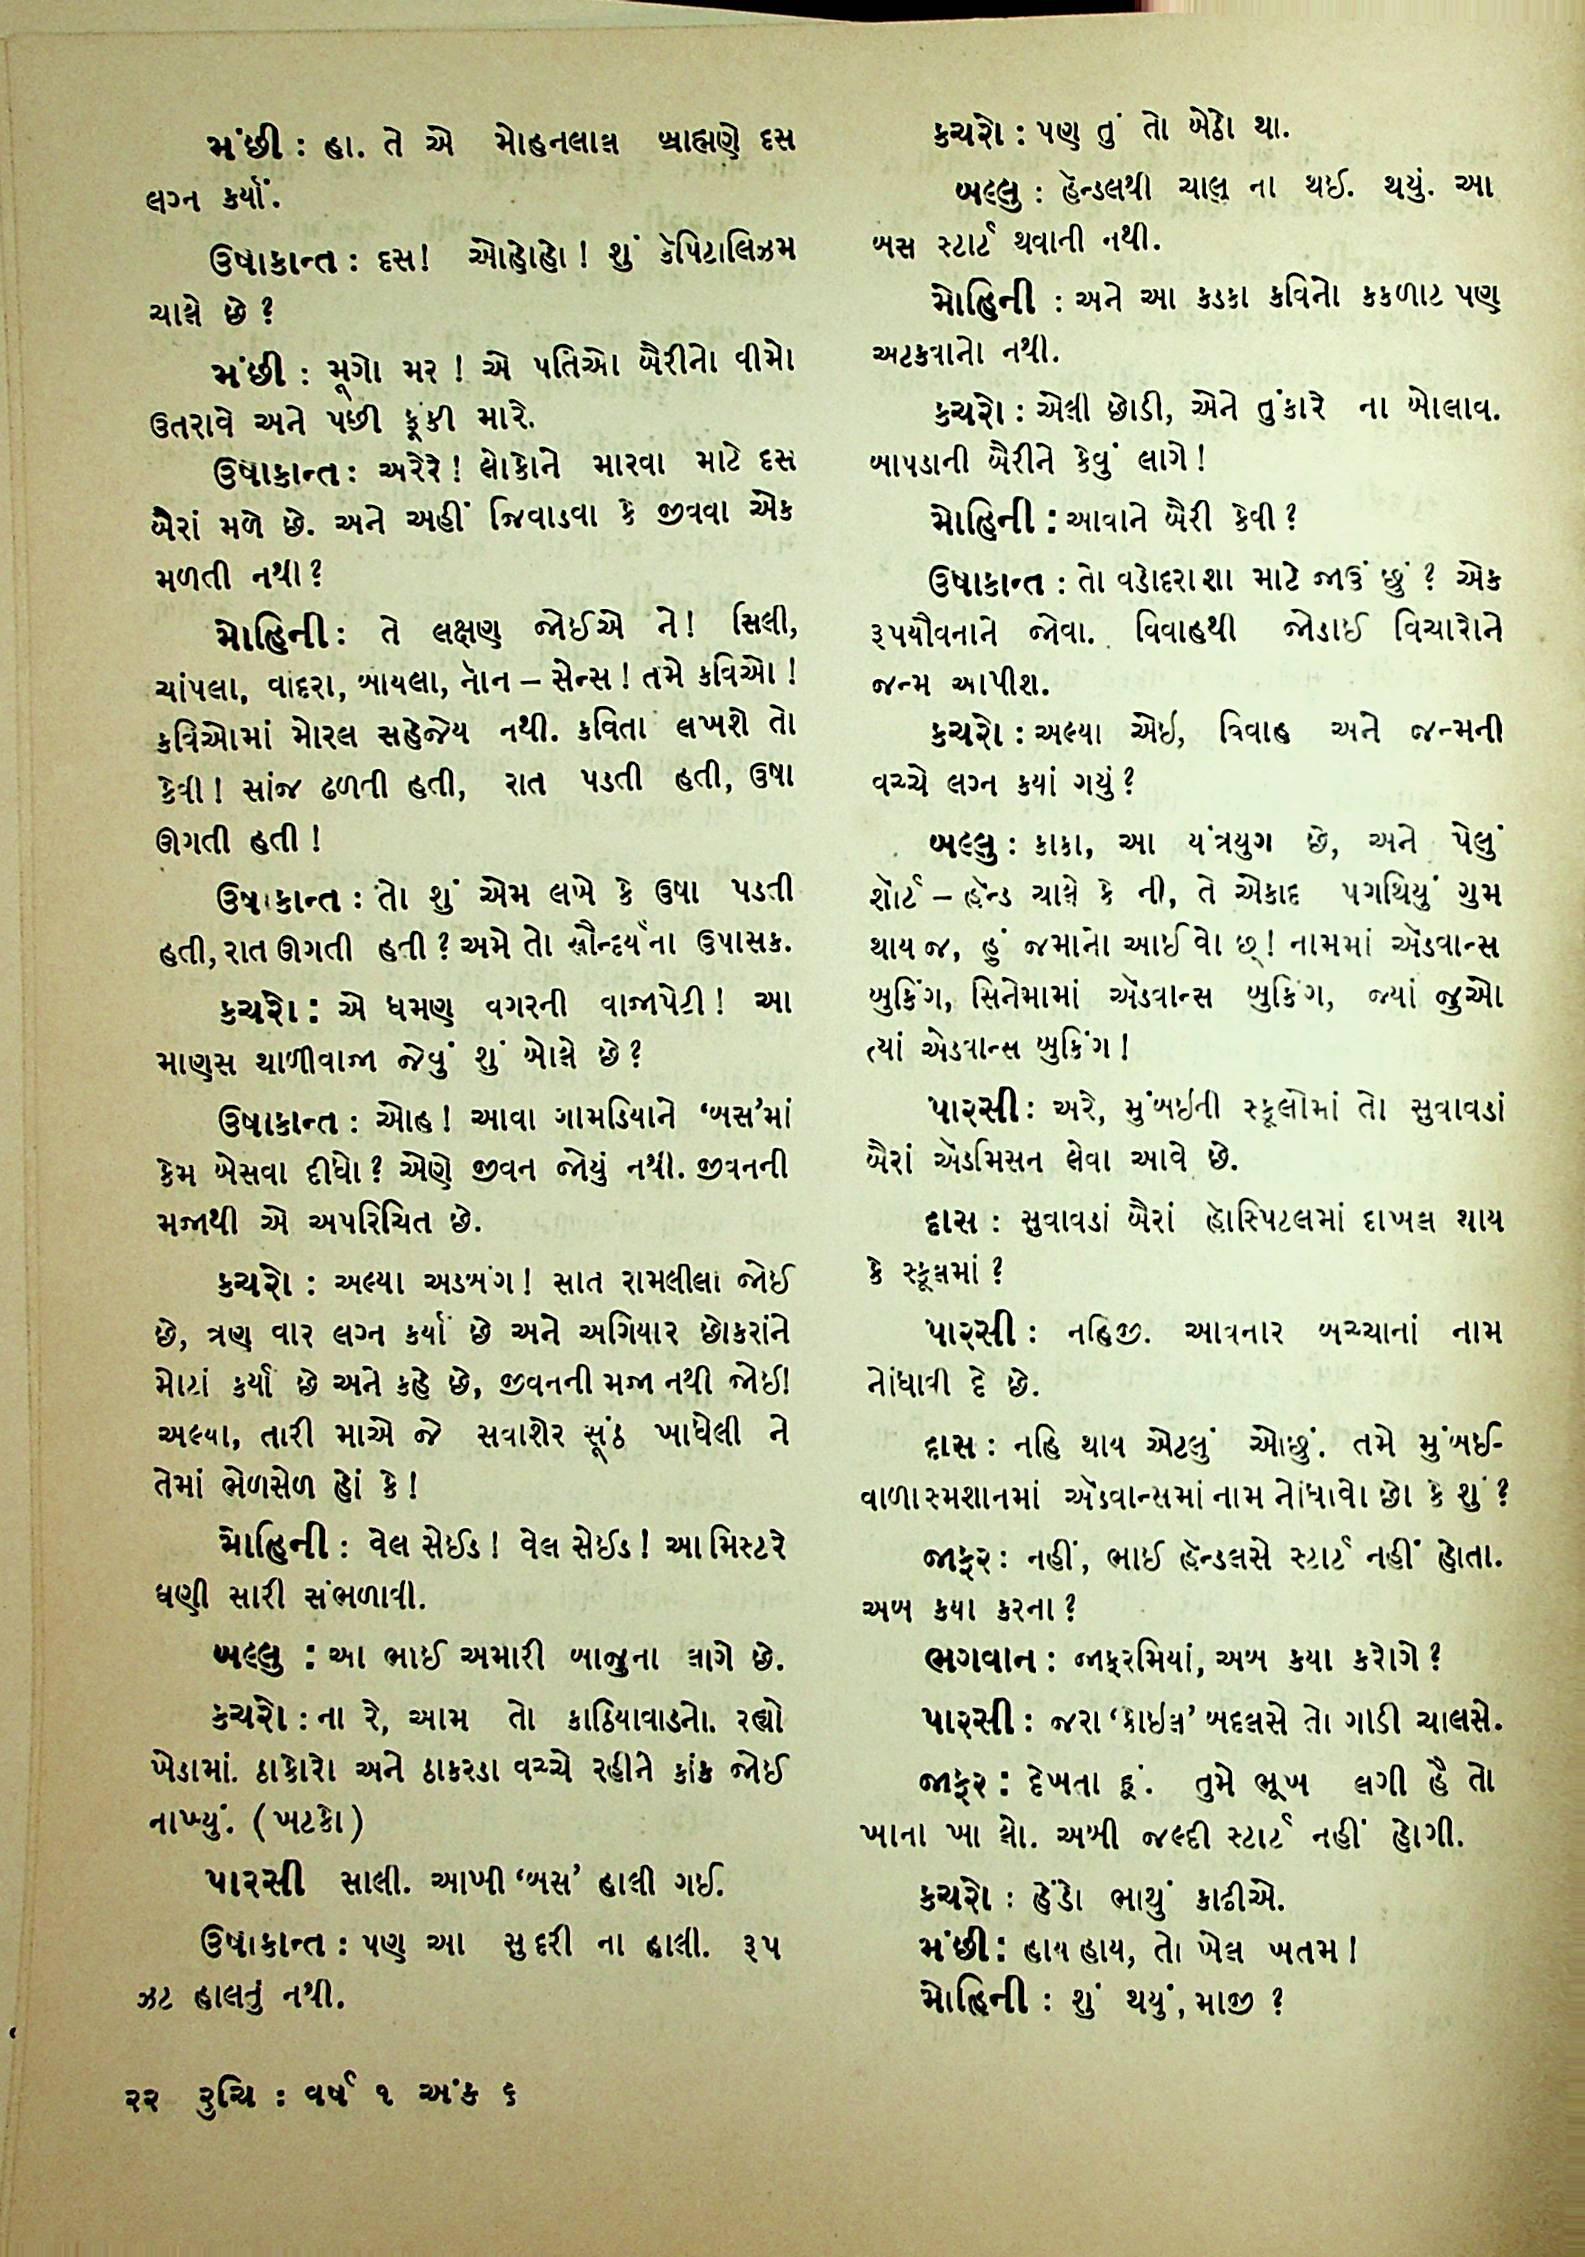 મંછી : હા. તે એ મોહનલાલ બ્રાહ્મણે દસ
લગ્ન કર્યાં.
ઉષાકાન્ત : દસ! ઓહોહો! શું કૅપિટાલિઝમ
ચાલે છે?
મંછી : મૂગો મર! એ પતિઓ બૈરીનો વીમો
ઉતરાવે અને પછી ફૂંકી મારે.
ઉષાકાન્ત : અરેરે! લોકોને મારવા માટે દસ
બૈરાં મળે છે. અને અહીં જિવાડવા કે જીવવા એક
મળતી નથી?
મોહિની : તે લક્ષણ જોઈએ ને! સિલી,
ચાંપલા, વાંદરા, બાયલા, નૉન – સેન્સ! તમે કવિઓ!
કવિઓમાં મોરલ સહેજેય નથી. કવિતા લખશે તો
કેવી! સાંજ ઢળતી હતી, રાત પડતી હતી, ઉષા
ઊગતી હતી!
ઉષાકાન્ત : તો શું એમ લખે કે ઉષા પડતી
હતી, રાત ઊગતી હતી? અમે તો સૌન્દર્યના ઉપાસક.
કચરો : એ ધમણ વગરની વાજાપેટી! આ
માણસ થાળીવાજા જેવું શું બોલે છે?
ઉષાકાન્ત : ઓહ! આવા ગામડિયાને ‘બસ’માં
કેમ બેસવા દીધો? એણે જીવન જોયું નથી. જીવનની
મજાથી એ અપરિચિત છે.
કચરો : અલ્યા અડબંગ! સાત રામલીલા જોઈ
છે, ત્રણ વાર લગ્ન કર્યાં છે અને અગિયાર છોકરાંને
મોટાં કર્યાં છે અને કહે છે, જીવનની મજા નથી જોઈ!
અલ્યા, તારી માએ જે સવાશેર સૂંઠ ખાધેલી ને
તેમાં ભેળસેળ હોં કે!
મોહિની : વેલ સેઈડ! વેલ સેઈડ! આ મિસ્ટરે
ઘણી સારી સંભળાવી.
બલ્લુ : આ ભાઈ અમારી બાજુના લાગે છે.
કચરો : ના રે, આમ તો કાઠિયાવાડનો. રહ્યો
ખેડામાં. ઠાકોરો અને ઠાકરડા વચ્ચે રહીને કાંક જોઈ
નાખ્યું. (ખટકો)
પારસી સાલી. આખી ‘બસ’ હાલી ગઈ.
ઉષાકાન્ત : પણ આ સુદરી ના હાલી. રૂપ
ઝટ હાલતું નથી.
કચરો : પણ તું તો બેઠો થા.
બલ્લુ : હૅન્ડલથી ચાલુ ના થઈ. થયું. આ
બસ સ્ટાર્ટ થવાની નથી.
મોહિની : અને આ કડકા કવિનો કકળાટ પણ
અટકવાનો નથી.
કચરો : એલી છોડી, એને તુંકારે ના બોલાવ.
બાપડાની બૈરીને કેવું લાગે!
મોહિની : આવાને બૈરી કેવી?
ઉષાકાન્ત : તો વડોદરા શા માટે જાઉં છું? એક
રૂપયૌવનાને જોવા. વિવાહથી જોડાઈ વિચારોને
જન્મ આપીશ.
કચરો : અલ્યા એઇ, વિવાહ અને જન્મની
વચ્ચે લગ્ન કયાં ગયું?
બલ્લુ : કાકા, આ યંત્રયુગ છે, અને પેલું
શૉર્ટ – હૅન્ડ ચાલે કે ની, તે એકાદ પગથિયું ગુમ
થાય જ, હું જમાનો આઈવો છ! નામમાં ઍડવાન્સ
બુકિંગ, સિનેમામાં ઍડવાન્સ બુકિંગ, જ્યાં જુઓ
ત્યાં એડવાન્સ બુકિંગ!
પારસી : અરે, મુંબઇની સ્કૂલોમાં તો સુવાવડાં
બૈરાં ઍડમિસન લેવા આવે છે.
દાસ : સુવાવડાં બૈરાં હોસ્પિટલમાં દાખલ થાય
કે સ્કૂલમાં?
પારસી : નહિજી. આવનાર બચ્ચાનાં નામ
નોંધાવી દે છે.
દાસ : નહિ થાય એટલું ઓછું. તમે મુંબઈ-
વાળા સ્મશાનમાં ઍડવાન્સમાં નામ નોંધાવો છો કે શું?
જાફર : નહીં, ભાઈ હૅન્ડલસે સ્ટાર્ટ નહીં હોતા.
અબ કયા કરના?
ભગવાન : જાફરમિયાં, અબ કયા કરોગે?
પારસી : જરા ‘કોઇલ’ બદલસે તો ગાડી ચાલસે.
જાફર : દેખતા હૂં. તુમે ભૂખ લગી હૈ તો
ખાના ખા લો. અભી જલ્દી સ્ટાર્ટ નહીં હોગી.
કચરો : હેંડો ભાથું કાઢીએ.
મંછી : હાય હાય, તો ખેલ ખતમ!
મોહિની : શું થયું, માજી?
૨૨ રુચિ : વર્ષ ૧ અંક ૬